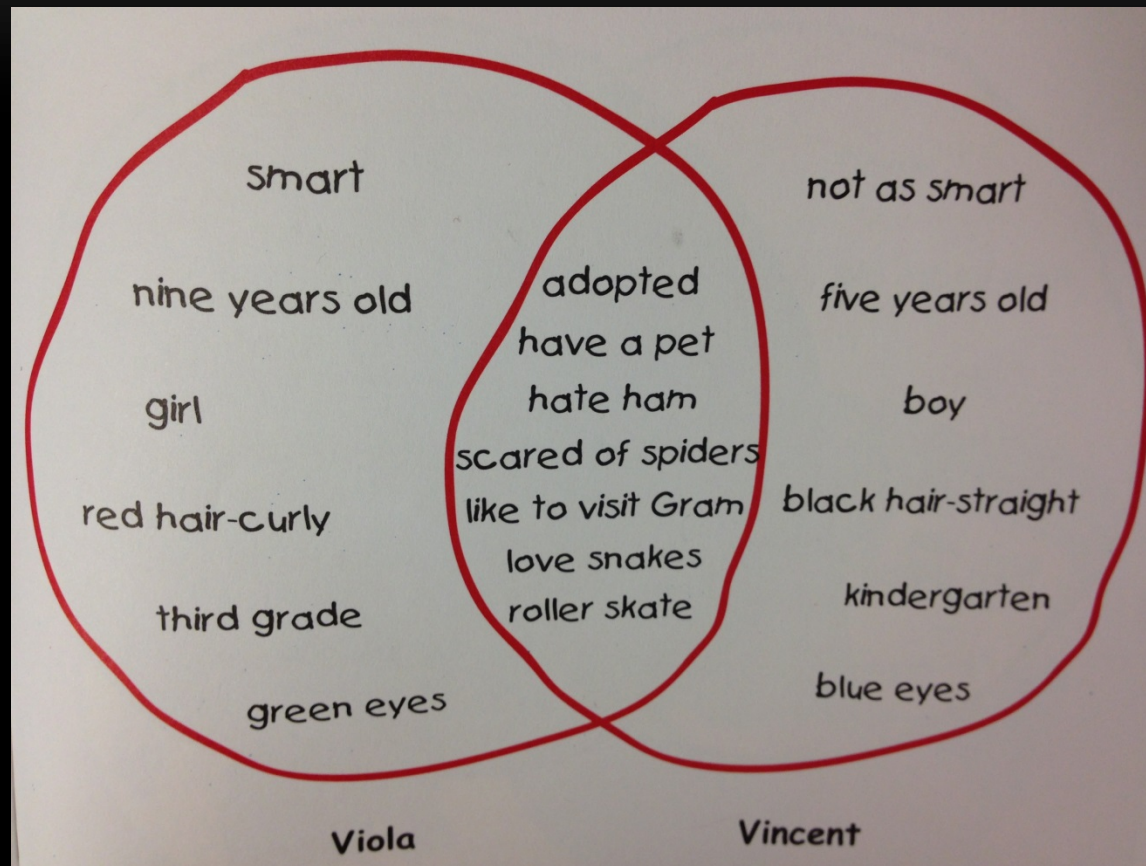 smart
nine years old
girl
red hair-curly
third grade
green eyes
adopted
have a pet
hate ham
scared of spiders
like to visit Gram
love snakes
roller skate
not as smart
five years old
boy
black hair-straight
kindergarten
blue eyes
Viola
Vincent